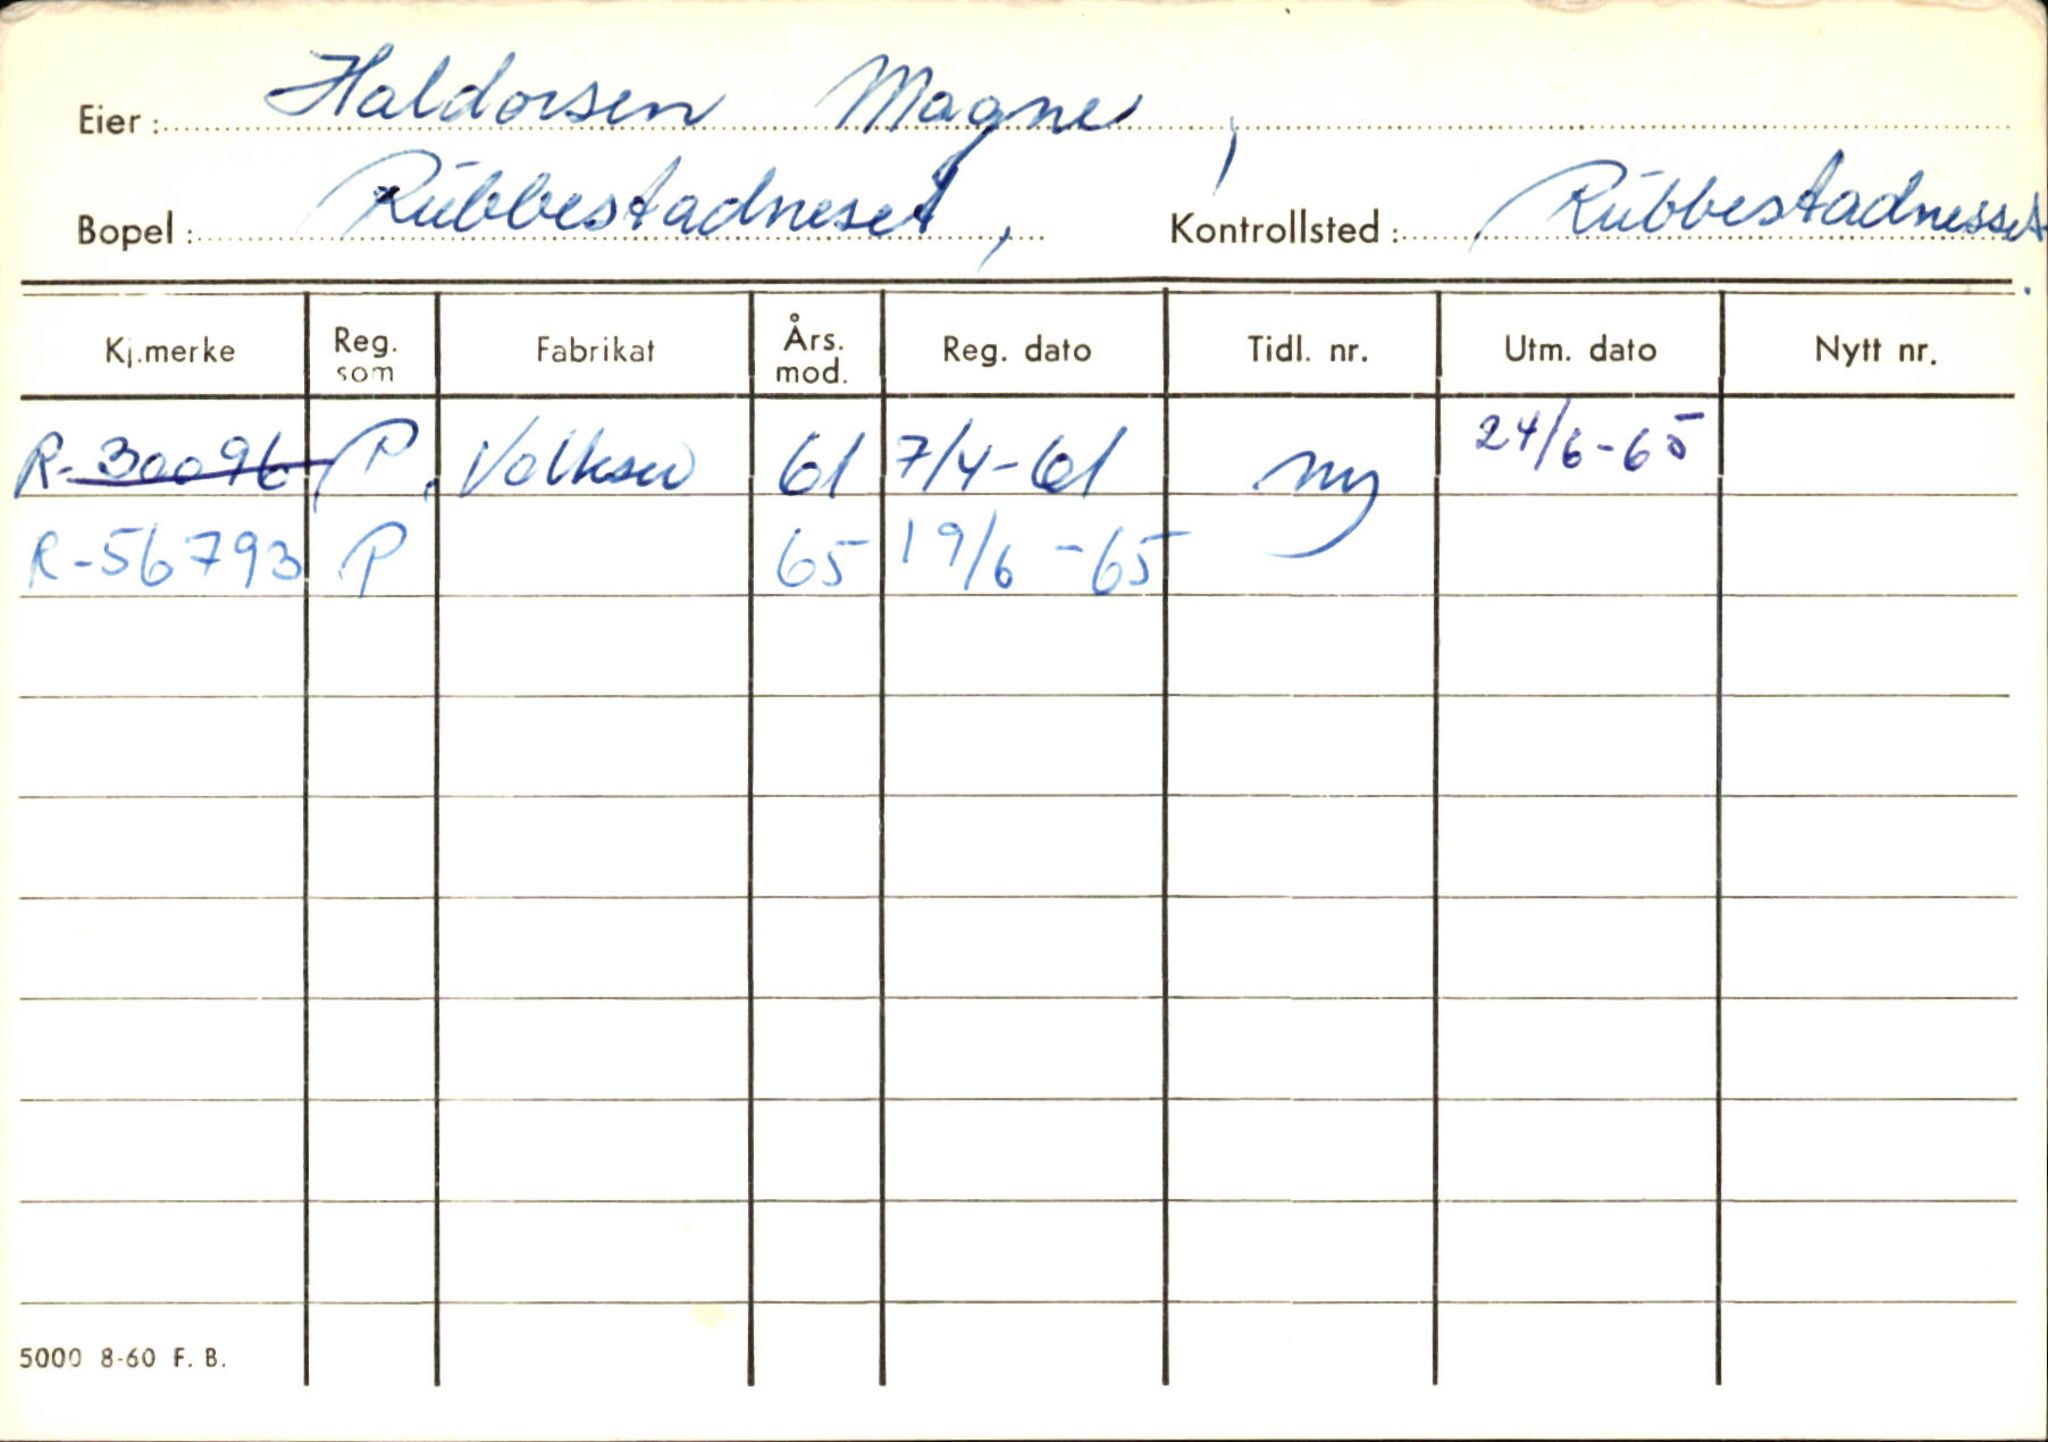 Eier: Haldorsen Magne,
Bopel: Rubbestadneset, Kontrollsted: Rubbestadnesset.
Kj.merke Reg. som Fabrikat Års. mod. Reg. dato Tidl. nr. Utm. dato Nytt nr.
R-30096 P. Volksw 61 7/4-61 ny 24/6-65
R-56793 P 65 19/6-65
5000 8-60 F. B.